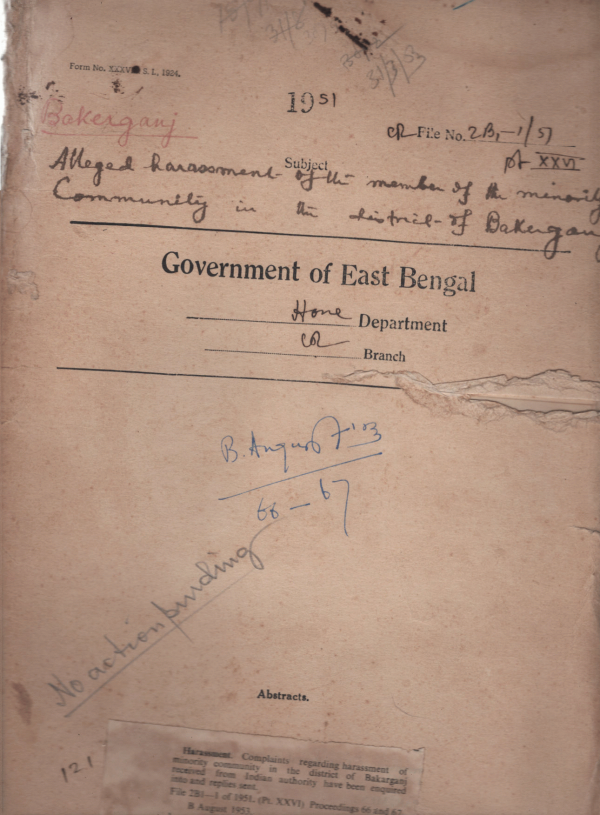 Form No. XXXVI S. I., 1924.
31/3/53
1951
Bakerganj
CR File No. 2B1-1/51
Subject
pt XXVI
Alleged harassment of the member of the minority
Community in the district of Bakerganj
Government of East Bengal
Home Department
CR Branch
B. August '53
66-67
No action pending
Abstracts.
121
Harassment. Complaints regarding harassment of
minority community in the district of Bakarganj
received from Indian authority have been enquired
into and replies sent.
File 2B1—1 of 1951. (Pt. XXVI) Proceedings 66 and 67
B August 1953.